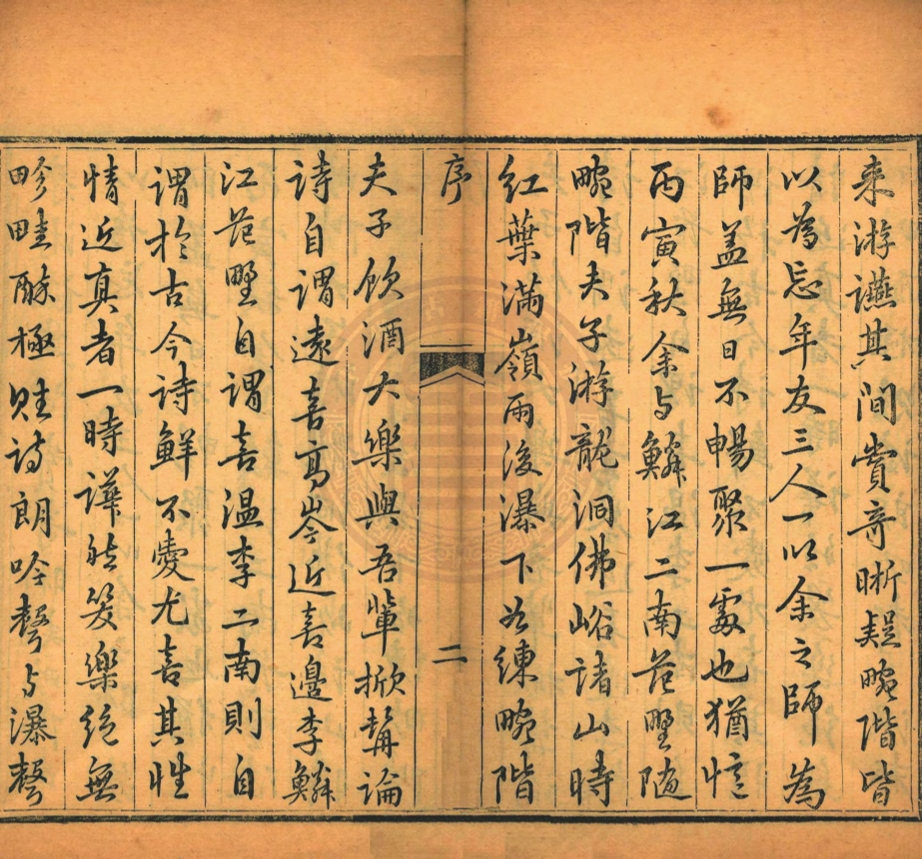 來游讌其間賞奇晰疑畹階皆
以為忘年友三人一以余之師為
師盖無日不暢聚一處也猶憶
丙寅秋余与鱗江二南芘野随
畹階夫子游龍洞佛峪諸山時
紅葉滿嶺雨後瀑下如練畹階
序 二
夫子飲酒大樂與吾輩掀髯論
詩自謂遠喜高岑近喜邊李鱗
江芘野自謂喜温李二南則自
謂於古今詩鮮不愛尤喜其性
情近真者一時譁然笑樂絕無
畛畦酥極賦詩朗吟聲与瀑聲